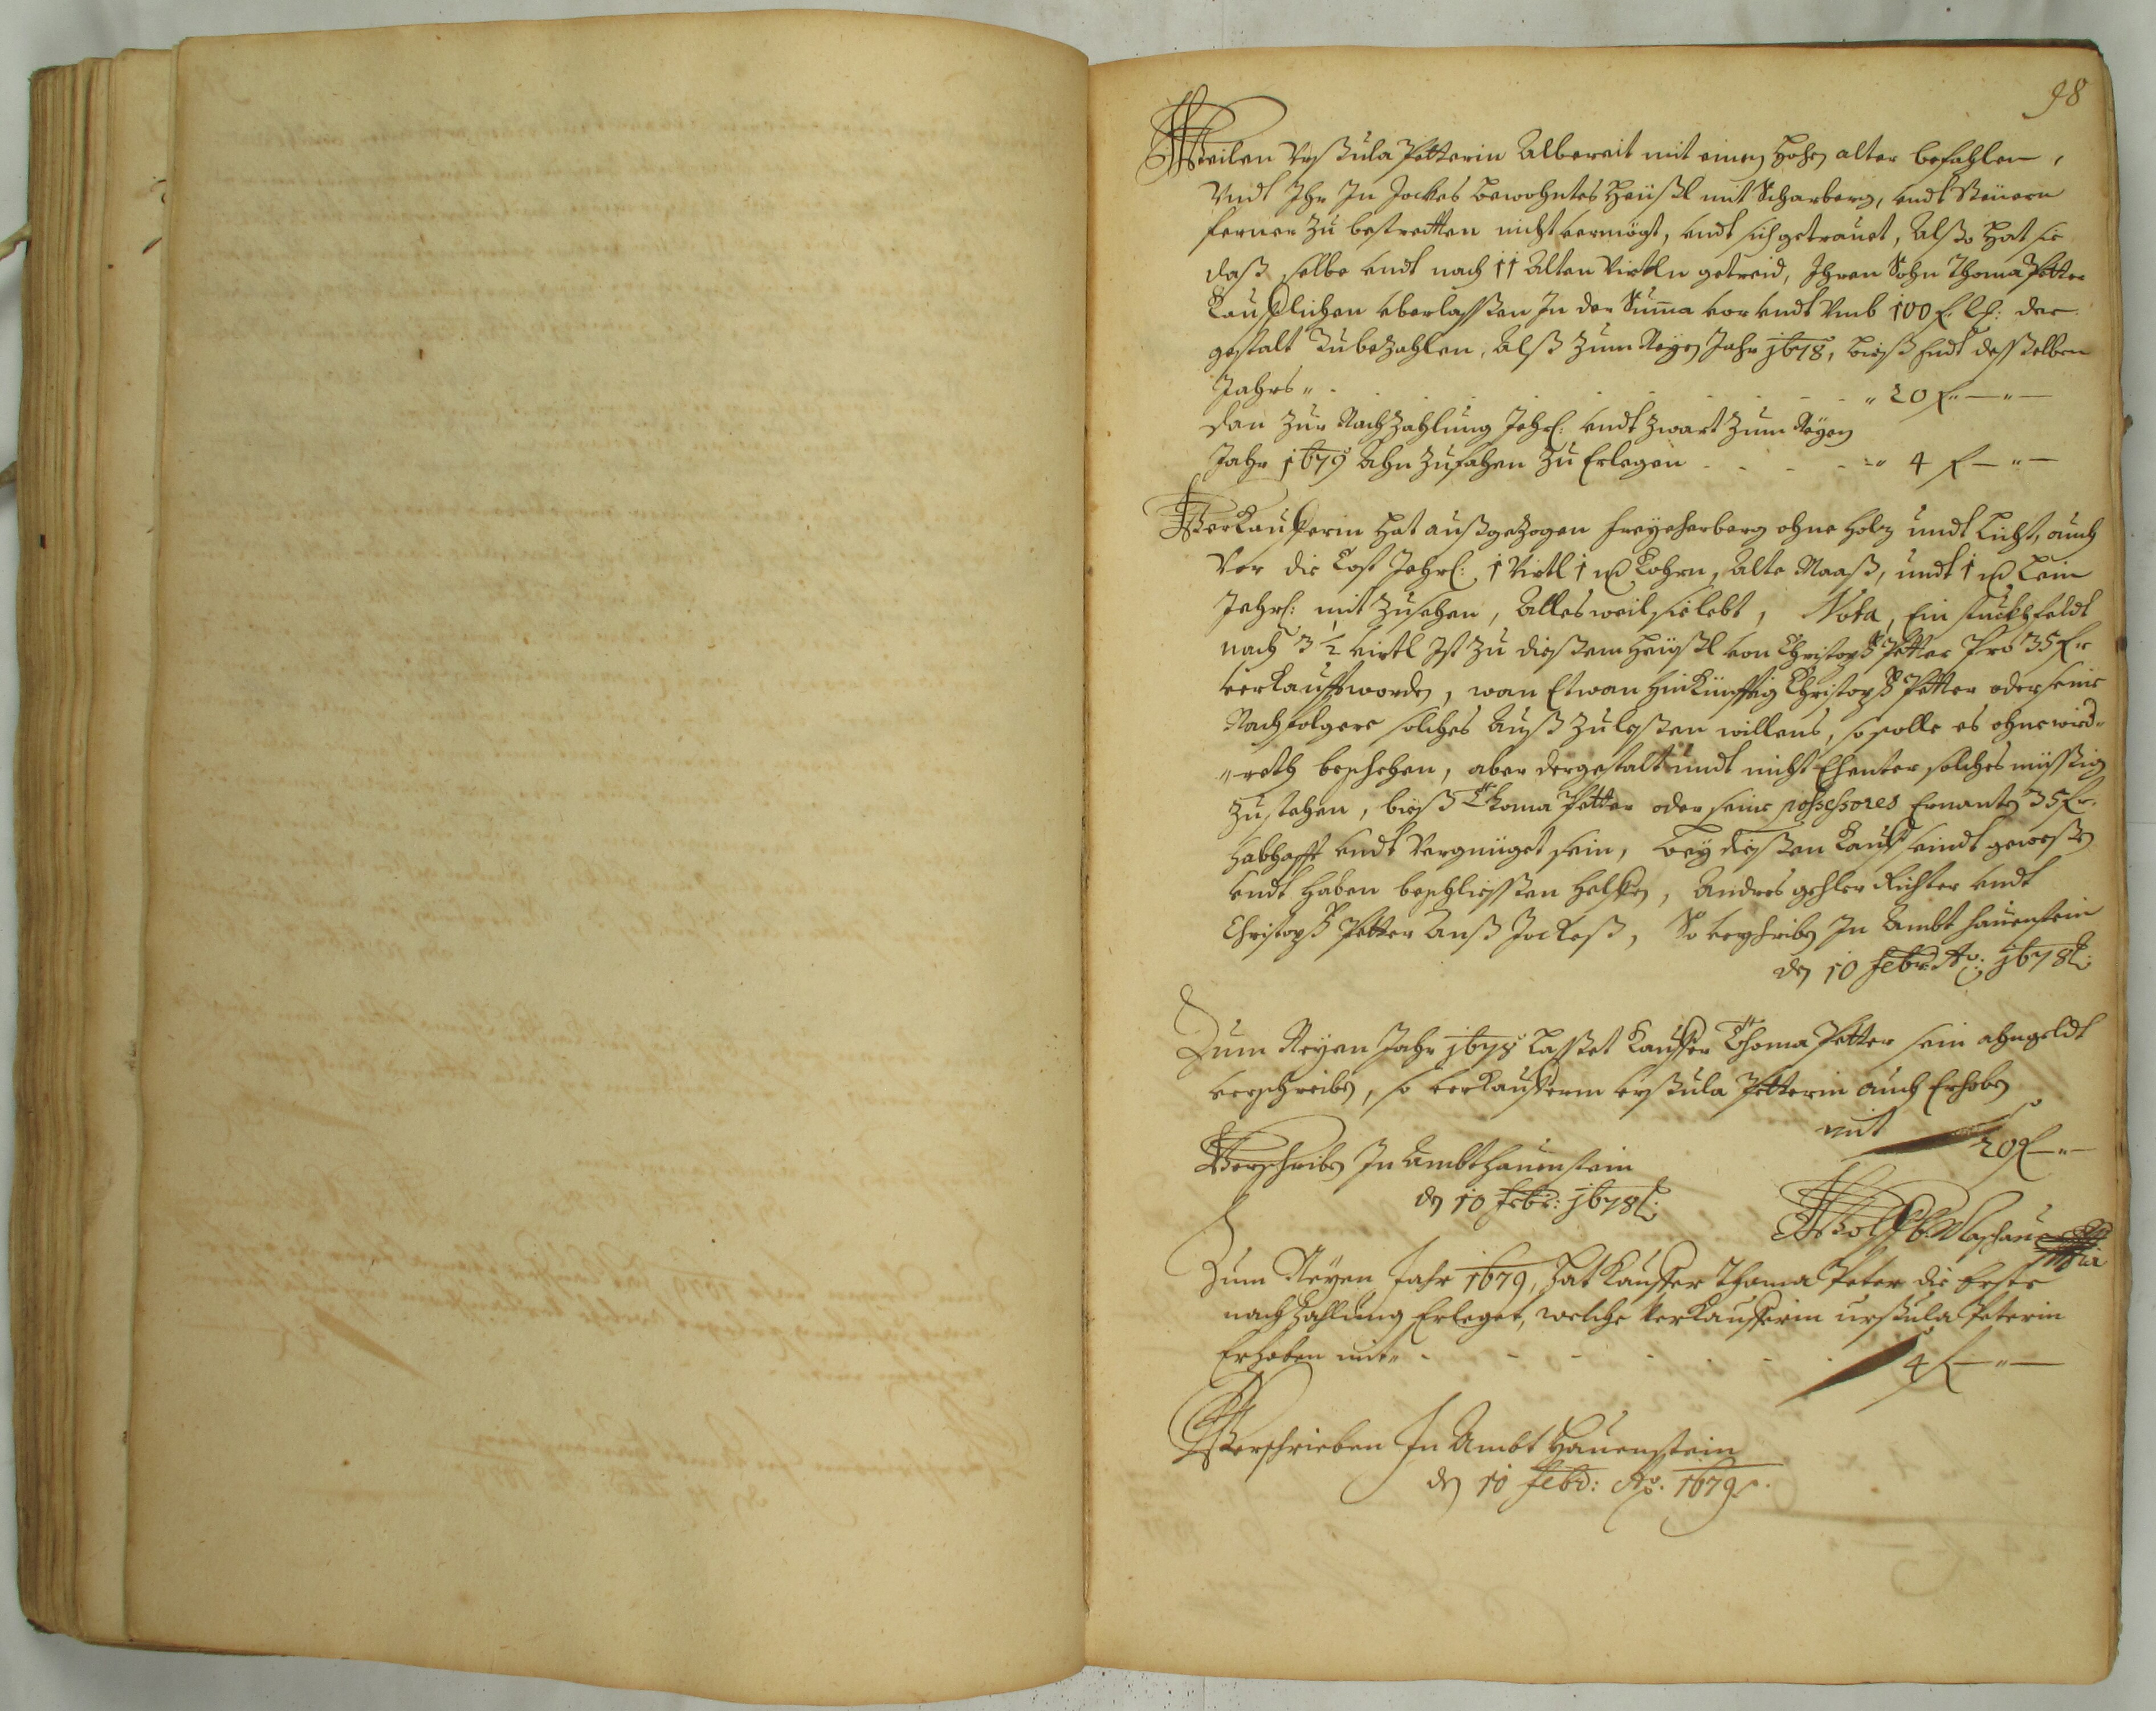 98
Weilen Urßula Petterin Albereit mit einen Hohen alter befahlen,
Undt Ihr In Jockes bewohntes Heüßl mit Scharberg, undt Steüern
ferner zu bestreitten nicht vermögt, undt sich getrauet, Alßo Hat sie
daß selbe undt nach 11 Alten Virtln getreid, Ihren Sohn Thoma Petter
Kauflichen uberlassen In der Suma vor undt Umb 100 f. der
gestalt Zubezahlen, Alß zum Neyen Jahr 1678, bieß Endt desselben
Jahrs 20 f
dan zur Nachzahlung Jehrl: undt zwart zum Neyen
Jahr 1679 Ahnzufahen zu Erlegen 4 f
Verkaufferin Hat außgezogen freyeherberg ohne Holz undt Licht, auch
Vor die Cost Jehrl: 1 Virtl 1 Kohrn, Alte Maaß, undt 1 Lein
Jehrl: mit zusehen, Alles weil sie lebt, Nota, Ein stuckh feldt
nach 3 1/2 virtl Ist zu dießem Heüßl von Christoph Petter Pro 35 f
verkaufft worden, wan Etwan hinkünfftig Christoph Petter oder seine
Nachfolgere solches Auß zuleßen willens, so solle es ohne wied
reth beschehen, aber dergestalt undt nicht Ehenter solches müssig
zustehen, bieß Thoma Petter oder seine possessores Ernante 35 f
habhafft undt Vergnüget sein, bey dießen Kauff seindt geweßen
undt haben beschliessen helffen, Andres gehler Richter undt
Christoph Petter Auß Jockeß, So beschrieben In Ambt Hauenstein
den 10 Febr: Ao: 1678
Zum Neyen Jahr 1678 Lasset Kauffer Thoma Petter sein ahngeldt
verschreiben, so verkaufferin Urßula Petterin auch Erhoben
mit 20 f
Verschrieben In Ambt Hauenstein
den 10 Febr: 1678
Wolff
Zum Neyen Jahr 1679, Hat Kauffer Thoma Peter die Erste
nachzahlung Erleget, welche Verkaufferin Urßula Peterin
Erhoben mit 4 f
Verschrieben In Ambt Hauenstein
den 10 Febr: Ao. 1679